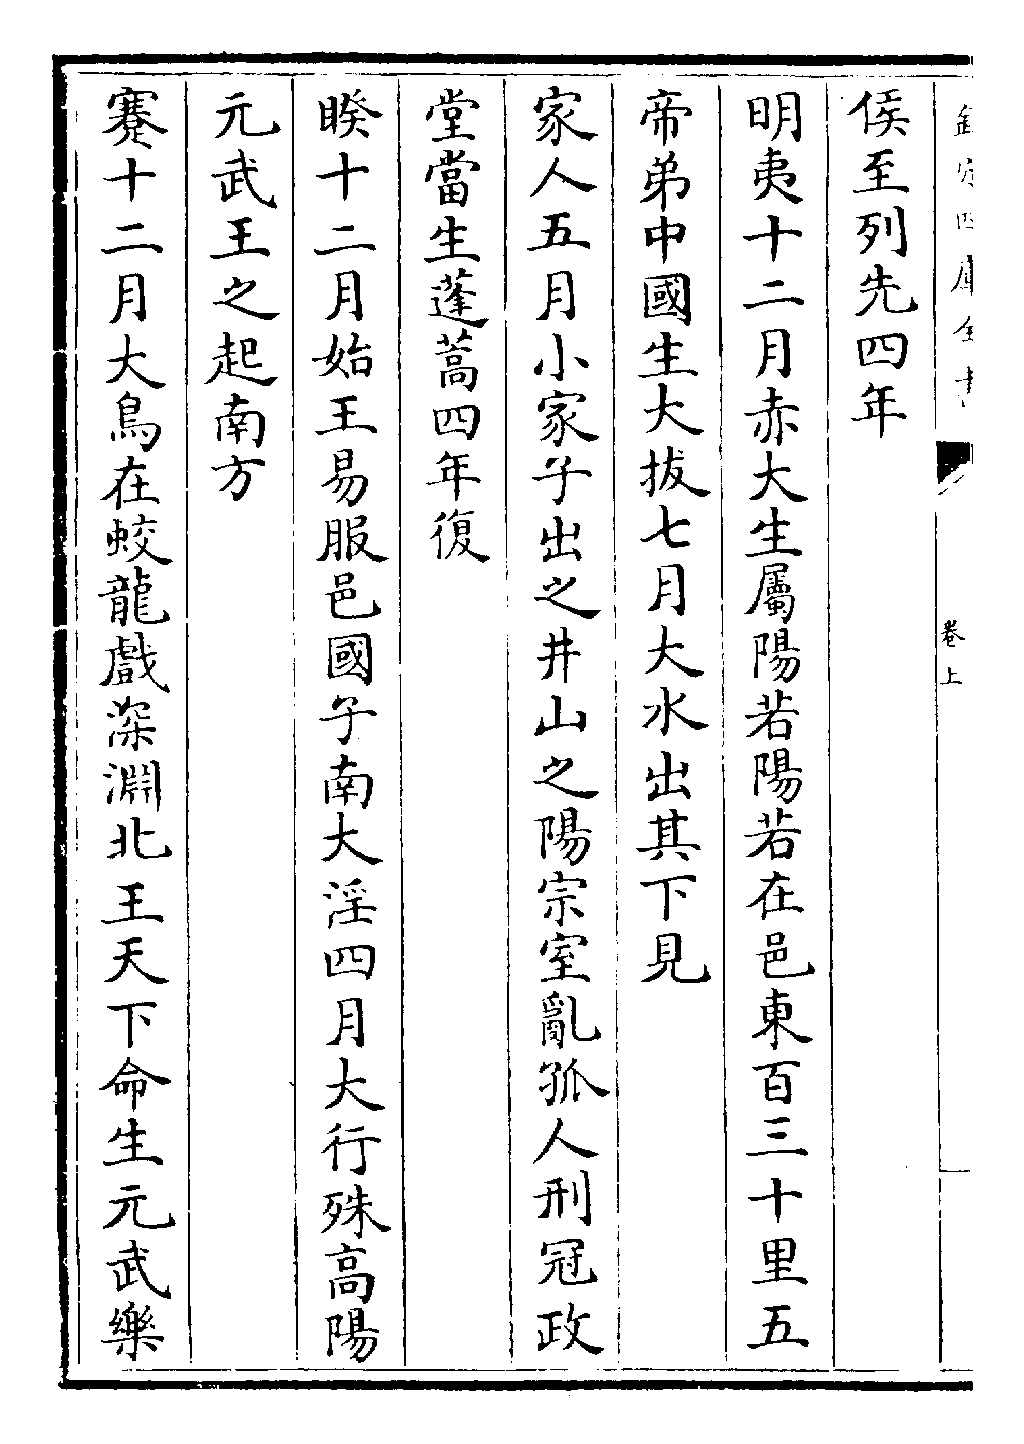 欽定四庫全書
卷上
侯至列先四年
明夷十二月赤大生屬陽若陽若在邑東百三十里五
帝弟中國生大拔七月大水出其下見
家人五月小家子出之井山之陽宗室亂孤人刑冠政
堂當生蓬蒿四年復
睽十二月始王易服邑國子南大淫四月大行殊高陽
元武王之起南方
蹇十二月大鳥在蛟龍戲深淵北王天下命生元武樂